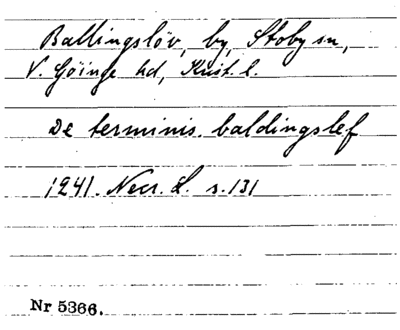 Ballingslöv, by, Stoby sn,
V. Göinge hd, Krist. l.
De terminis. baldingslef
1241. Necr. L. s. 131
Nr 5366.